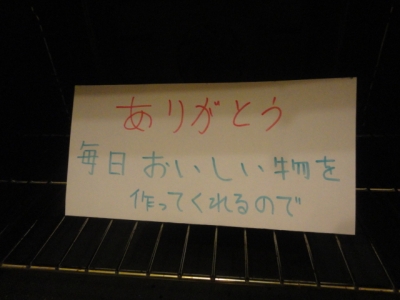 ありがとう
毎日おいしい物を
作ってくれるので